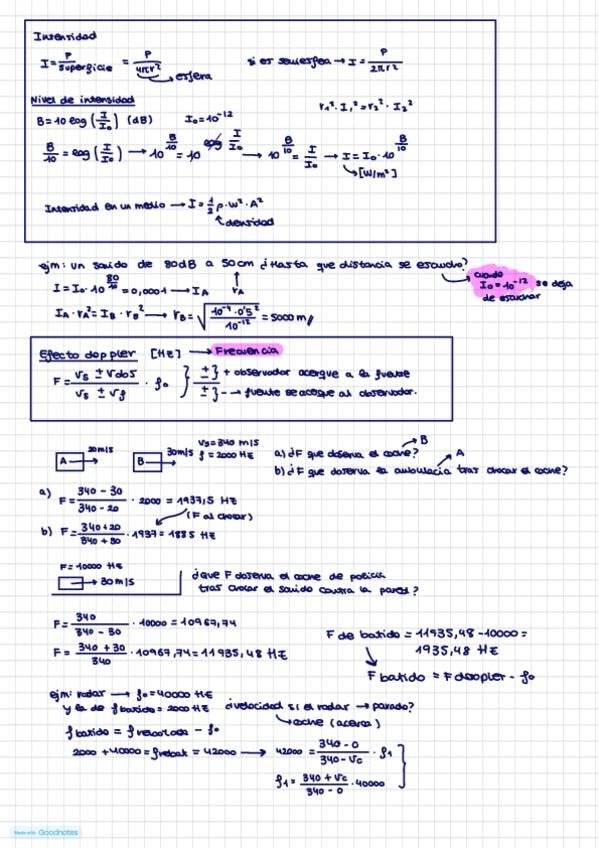 Intensidad
I = P/superficie = P/4πr² → esfera   si es semiesfera → I = P/2πr²
Nivel de intensidad   r₁²·I₁² = r₂²·I₂²
B = 10 log (I/I₀) (dB)   I₀ = 10⁻¹²
B/10 = log (I/I₀) → 10^(B/10) = 10^(log I/I₀) → 10^(B/10) = I/I₀ → I = I₀·10^(B/10)
→ [W/m²]
Intensidad en un medio → I = 1/2 ρ·w²·A²
densidad
ejm: un sonido de 80dB a 50cm ¿Hasta que distancia se escucha?
I = I₀·10^(80/10) = 0,0001 → I_A   r_A
cuando I₀ = 10⁻¹² se deja
de escuchar
I_A·r_A² = I_B·r_B² → r_B = √(10⁻⁴·0'5²/10⁻¹²) = 5000 m
Efecto doppler [Hz] → Frecuencia
F = (vs ± vdos)/(vs ± vf) · f₀   ± } + observador acerque a la fuente
± } - → fuente se acerque al observador.
A → 20m/s   B → 30m/s   vs = 340 m/s
f = 2000 Hz
a) ¿F que observa el coche? → B
b) ¿F que observa la ambulacia tras chocar el coche? → A
a) F = (340 - 30)/(340 - 20) · 2000 = 1937,5 Hz
(F al chocar)
b) F = (340 + 20)/(340 + 30) · 1937 = 1885 Hz
F = 10000 Hz
→ 30m/s
¿que F observa el coche de policia
tras chocar el sonido contra la pared?
F = 340/(340 - 30) · 10000 = 10967,74
F = (340 + 30)/340 · 10967,74 = 11935,48 Hz
F de batido = 11935,48 - 10000 =
1935,48 Hz
F batido = F doppler - f₀
ejm: radar → f₀ = 40000 Hz
y la de f batido = 2000 Hz   ¿velocidad si el radar → parado?
→ coche (acerca)
f batido = f rebotada - f₀
2000 + 40000 = f rebot = 42000 → 42000 = (340 - 0)/(340 - vc) · f₁
f₁ = (340 + vc)/(340 - 0) · 40000
Made with Goodnotes